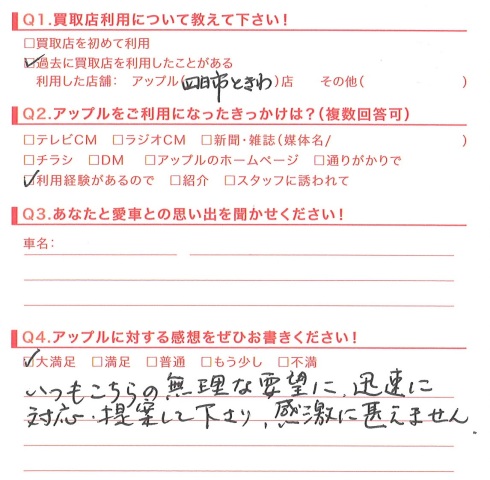 Q1.買取店利用について教えて下さい！
□買取店を初めて利用
☑過去に買取店を利用したことがある
利用した店舗： アップル（四日市ときわ）店 その他（ ）
Q2.アップルをご利用になったきっかけは？（複数回答可）
□テレビCM □ラジオCM □新聞・雑誌（媒体名/ ）
□チラシ □DM □アップルのホームページ □通りがかりで
☑利用経験があるので □紹介 □スタッフに誘われて
Q3.あなたと愛車との思い出を聞かせください！
車名：
Q4.アップルに対する感想をぜひお書きください！
☑大満足 □満足 □普通 □もう少し □不満
いつもこちらの無理な要望に、迅速に
対応・提案して下さり、感激に甚えません。